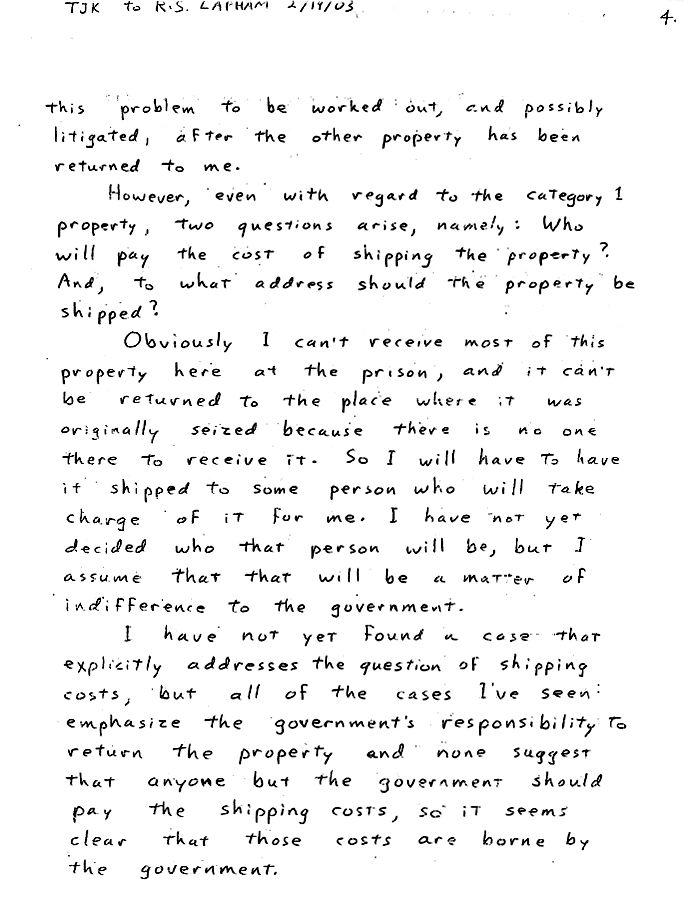 TJK to R.S. LAPHAM 2/19/03
4.
this problem to be worked out, and possibly
litigated, after the other property has been
returned to me.
However, even with regard to the category 1
property, two questions arise, namely: Who
will pay the cost of shipping the property?
And, to what address should the property be
shipped?
Obviously I can't receive most of this
property here at the prison, and it can't
be returned to the place where it was
originally seized because there is no one
there to receive it. So I will have to have
it shipped to some person who will take
charge of it for me. I have not yet
decided who that person will be, but I
assume that that will be a matter of
indifference to the government.
I have not yet found a case that
explicitly addresses the question of shipping
costs, but all of the cases I've seen
emphasize the government's responsibility to
return the property and none suggest
that anyone but the government should
pay the shipping costs, so it seems
clear that those costs are borne by
the government.